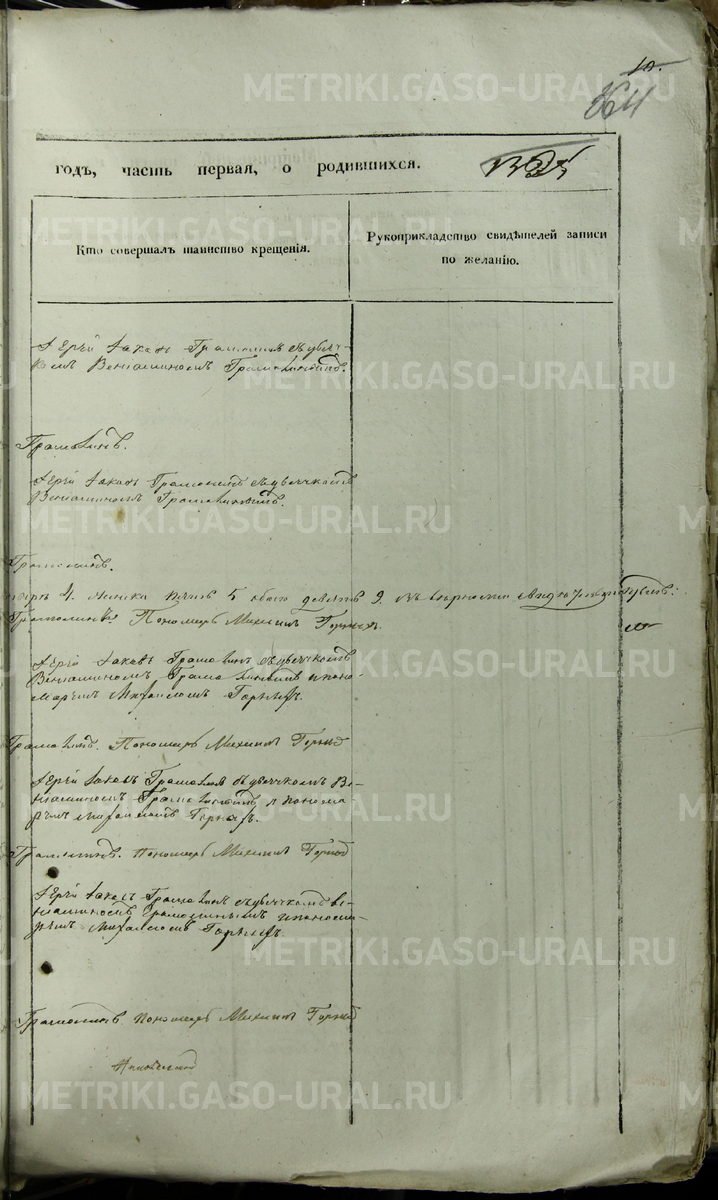 10.
364
годъ, часть первая, о родившихся.
Кто совершалъ таинство крещенія.
Рукоприкладство свидѣтелей записи
по желанію.
Іерей Іаковъ Грамолинъ съ дьяч-
комъ Веніаминомъ Грамолинымъ.
Грамолинъ.
Іерей Іаковъ Грамолинъ съ дьячкомъ
Веніаминомъ Грамолинымъ.
Грамолинъ.
4. женска пять 5 обоего девять 9. въ
Грамолинъ Пономарь Михаилъ Горныхъ.
Іерей Іаковъ Грамолинъ съ дьячкомъ
Веніаминомъ Грамолинымъ и поно-
маремъ Михаиломъ Горныхъ.
Грамолинъ. Пономарь Михаилъ Горныхъ
Іерей Іаковъ Грамолинъ съ дьячкомъ Ве-
ніаминомъ Грамолинымъ и понома-
ремъ Михаиломъ Горныхъ.
Грамолинъ. Пономарь Михаилъ Горныхъ
Іерей Іаковъ Грамолинъ съ дьячкомъ Ве-
ніаминомъ Грамолинымъ и понома-
ремъ Михаиломъ Горныхъ.
Грамолинъ. Пономарь Михаилъ Горныхъ
METRIKI.GASO-URAL.RU